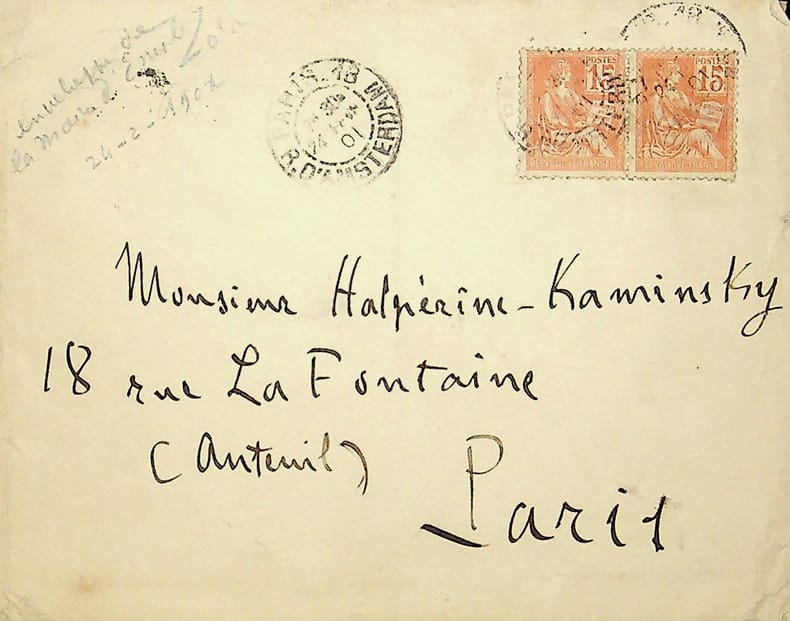 enveloppe de
la main d'Emile Zola
24-2-1901
PARIS. 18
24
01
R. D'AMSTERDAM
POSTES
15
REPUBLIQUE FRANÇAISE
POSTES
15
REPUBLIQUE FRANÇAISE
Monsieur Halpérine-Kaminsky
18 rue La Fontaine
(Auteuil)
Paris